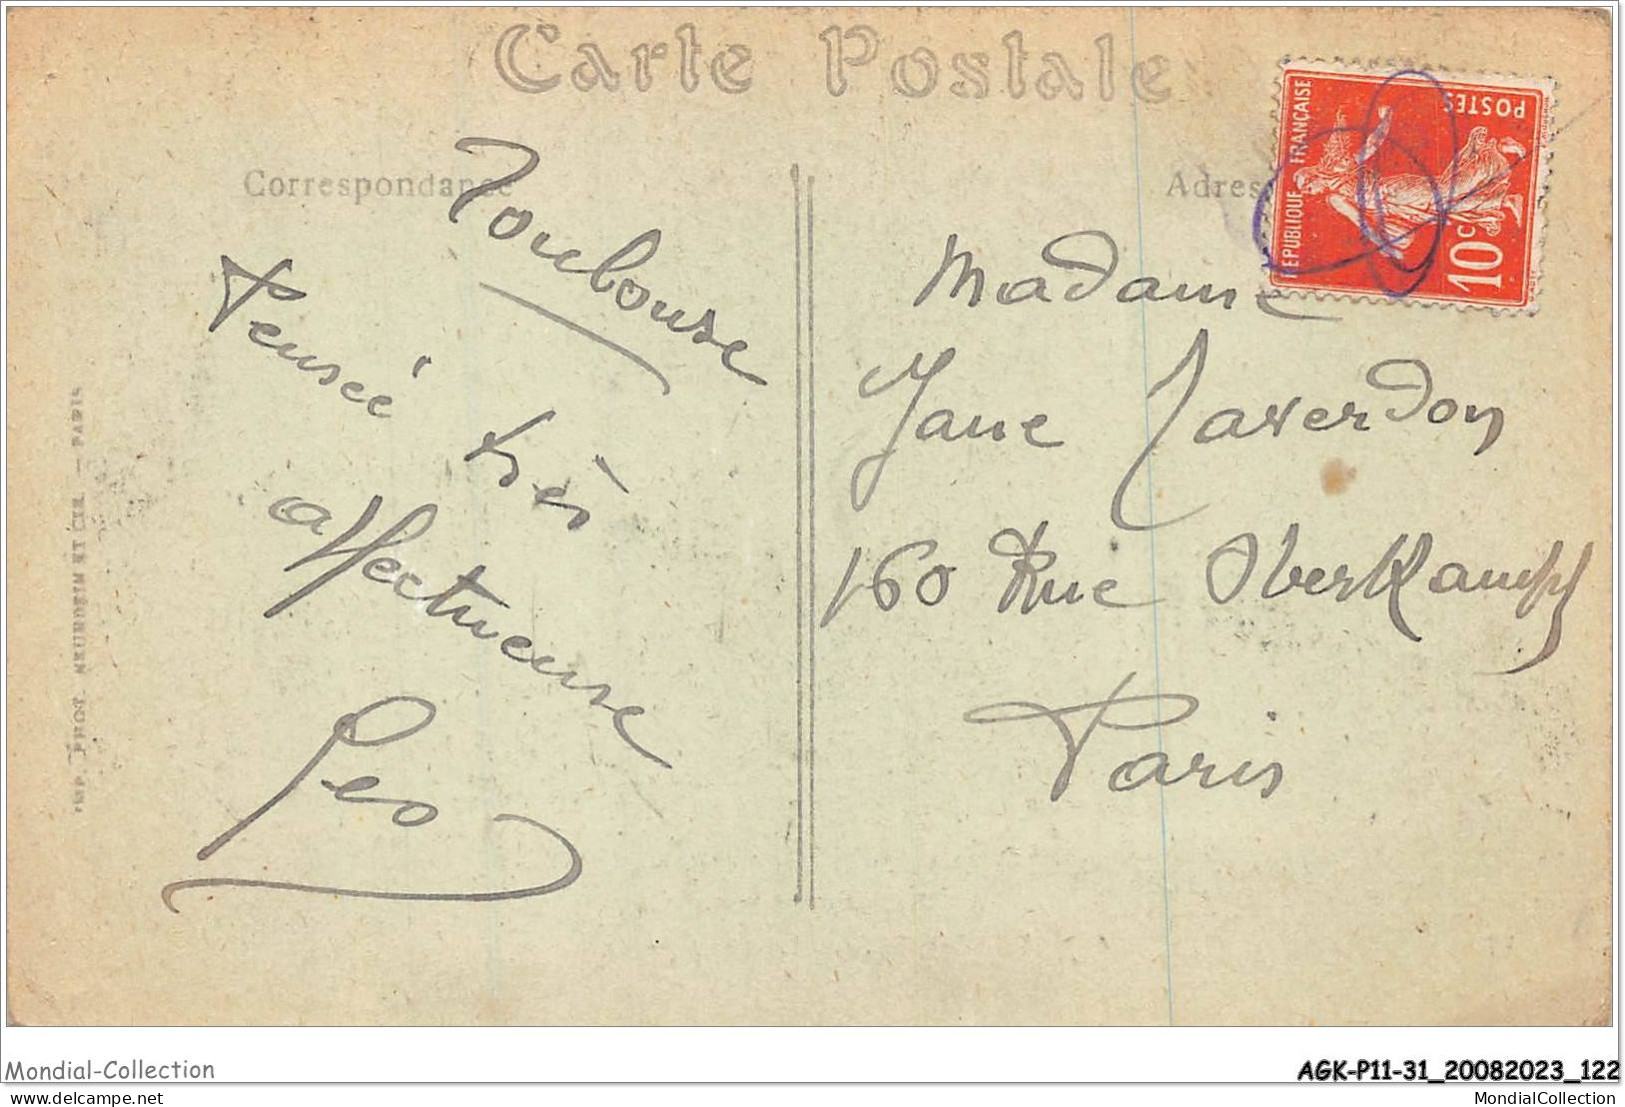 Carte Postale
Correspondance
Toulouse
Pensée très
affectueuse
Leo
IMP. PHOT. NEURDEIN ET CIE. — PARIS
Adres
RÉPUBLIQUE FRANÇAISE
POSTES
10 C
Madame
Jane Laverdon
160 Rue Oberkampf
Paris
Mondial-Collection
AGK-P11-31_20082023_122
www.delcampe.net
MondialCollection